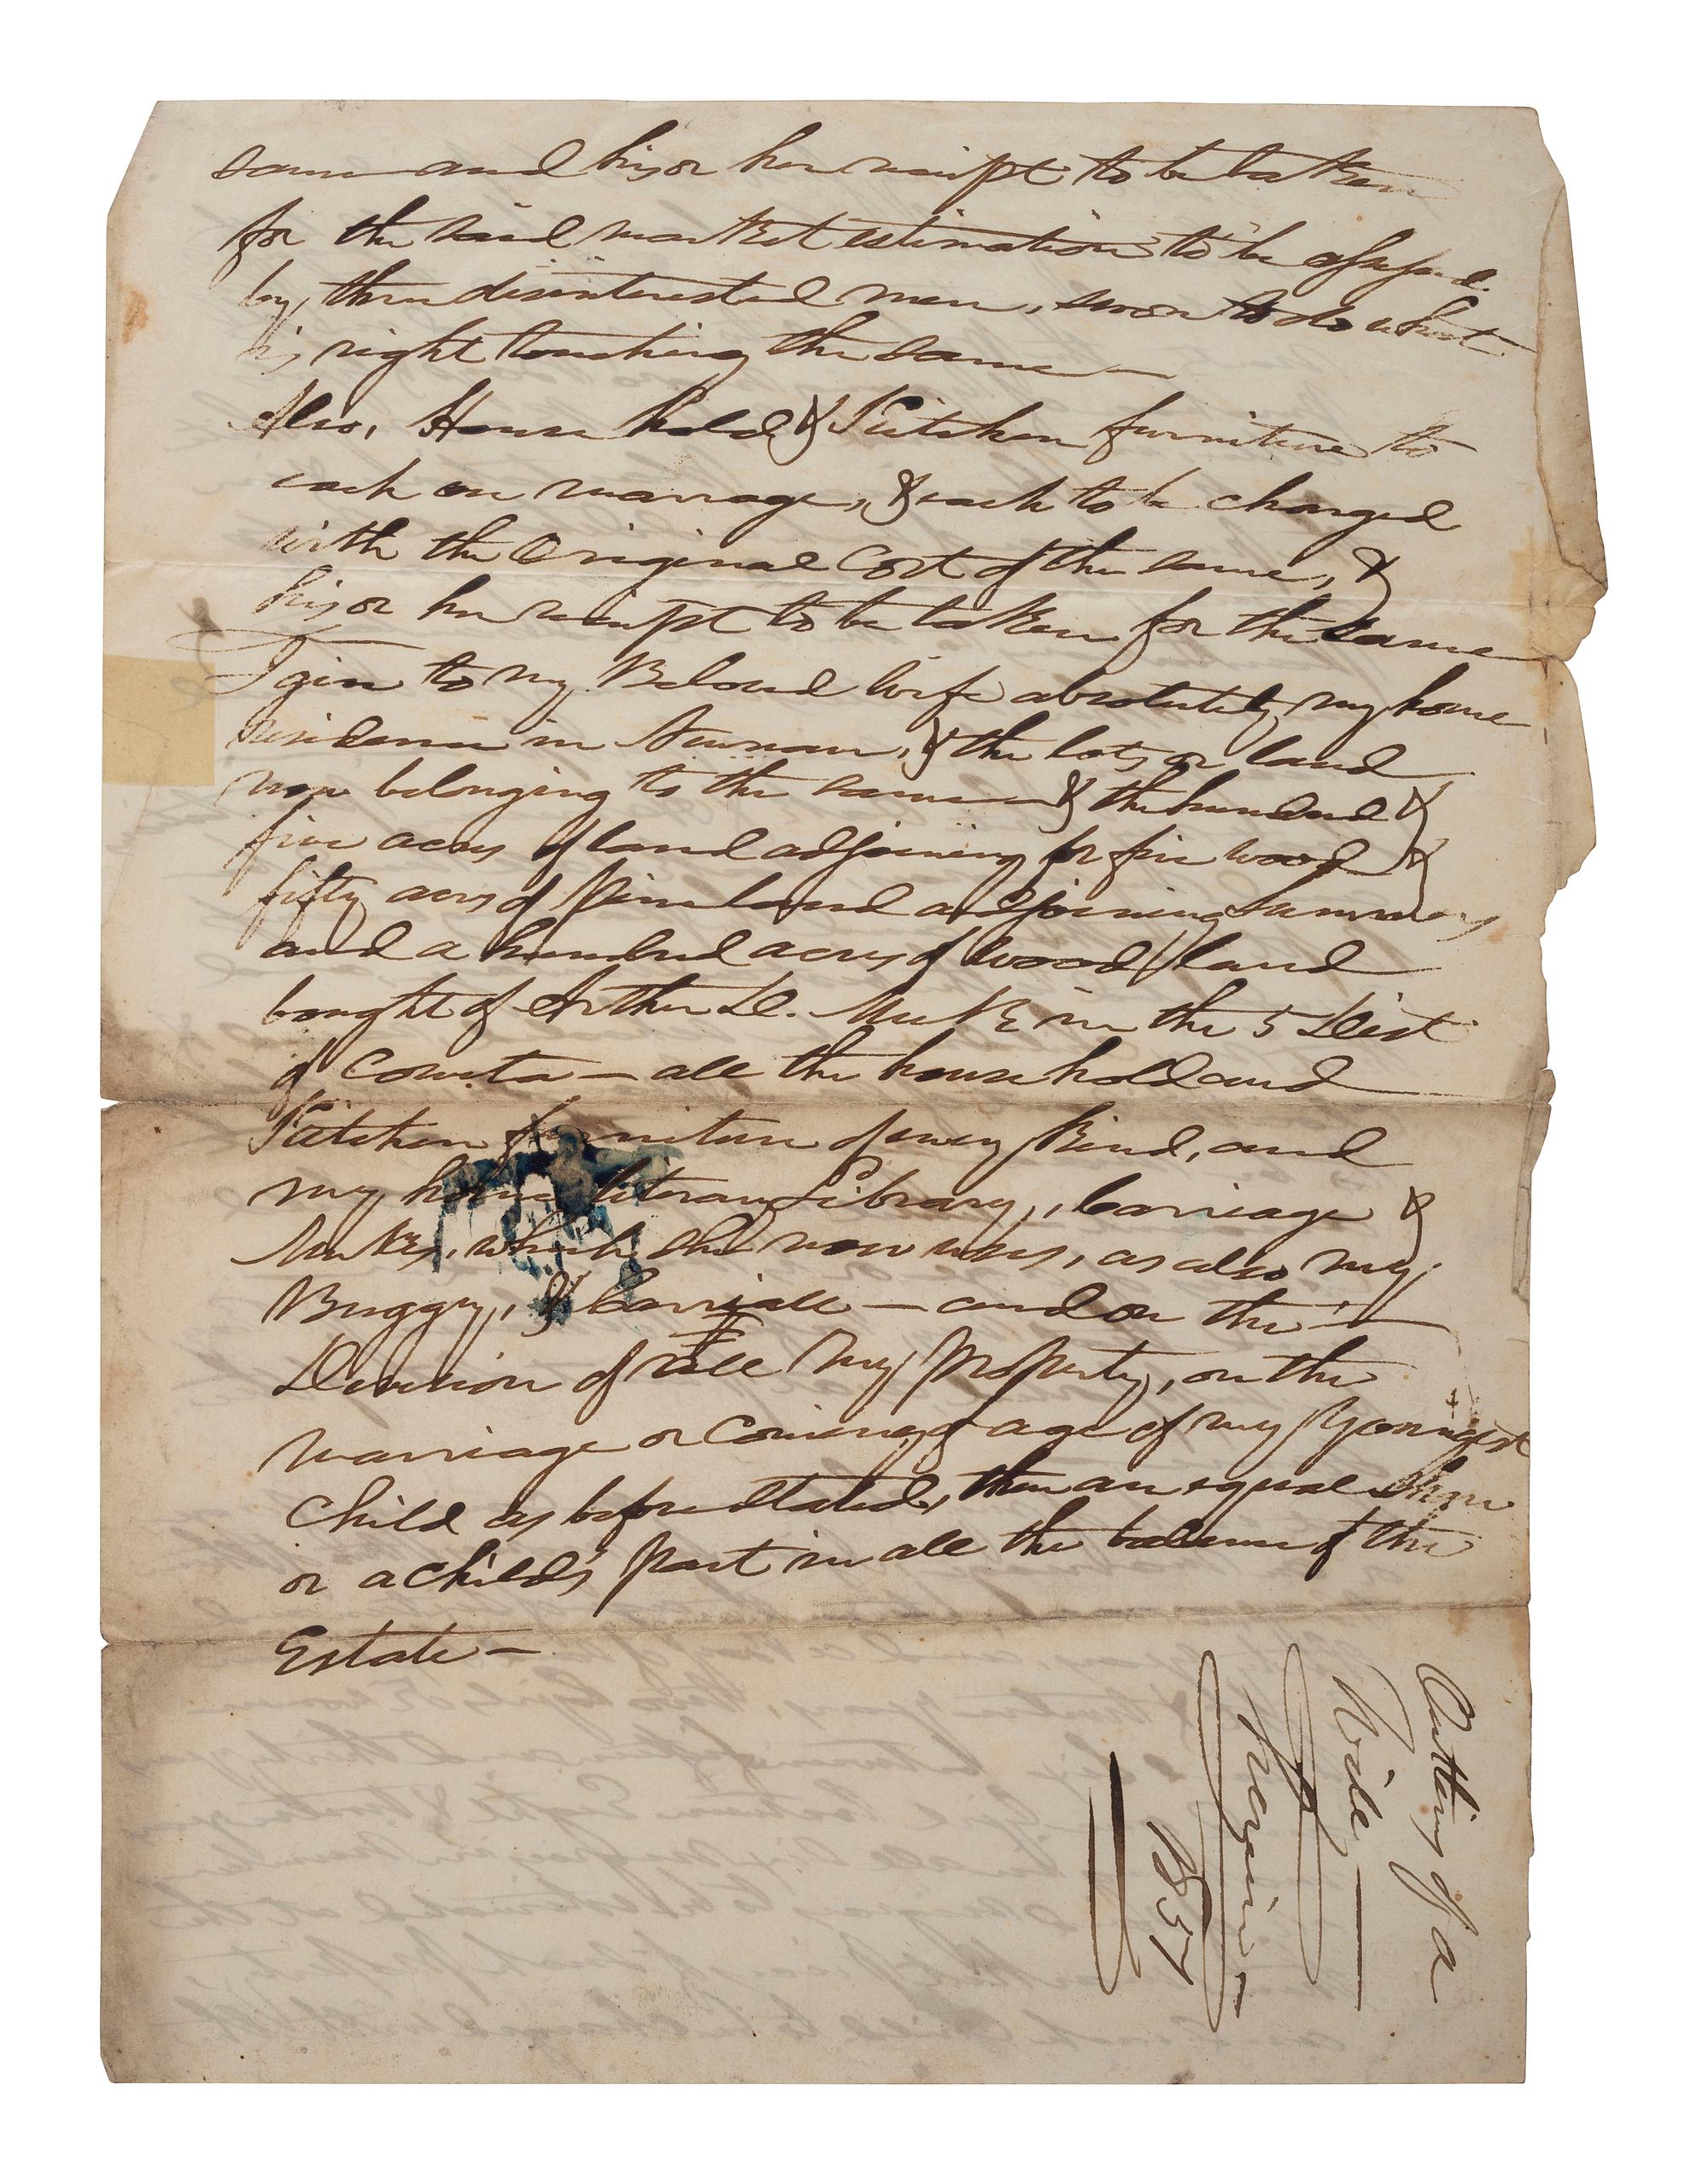 same and his or her reciept to be taken
for the said market estimation to be assessed
by, three disinterested men, sworn to do what
is right touching the same —
Also, House hold & Kitchen furniture to
each on marrage, & each to be charged
with the Original Cost of the same, &
his or her reciept to be taken for the same
I give to my Beloved wife absolutely my home
residence in Newnan, & the lots or land
now belonging to the same & the hundred &
five acres of land adjoining for fire wood &
fifty acres of Pine land adjoining
and a hundred acres of wood land
bought of D. in the 5 Dist
of Coweta — all the household and
Kitchen furniture of every Kind, and
my home literary Library, carriage &
Mules, which she now uses, as also my
Buggy, & — and on the —
Division of all my Property, on the
marriage or Coming of age of my Youngest
Child as before stated, then an equal share
or a child's part in all the balance of the
Estate —
Outlines of a
Will —
1857